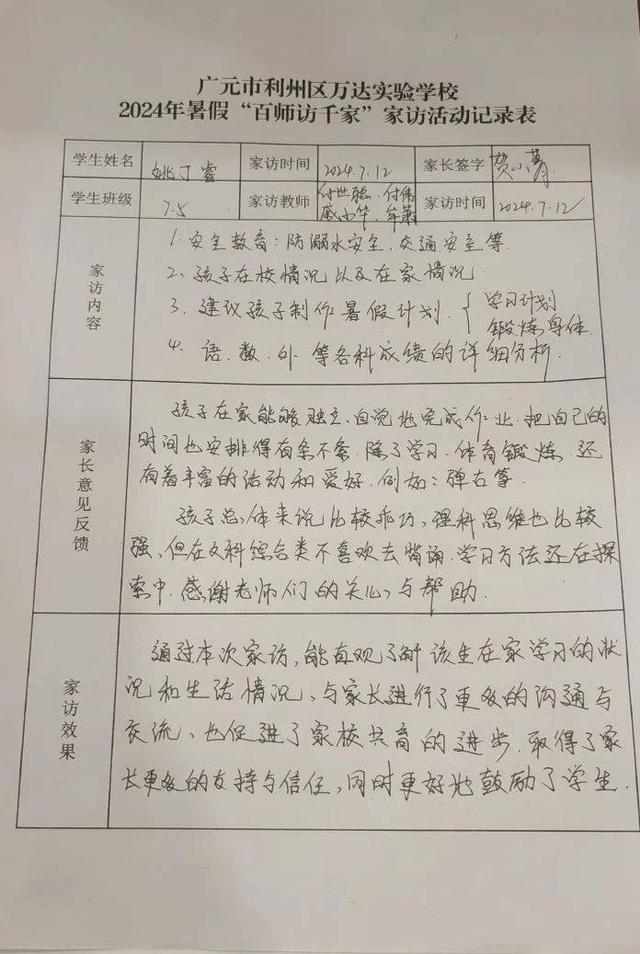 广元市利州区万达实验学校
2024年暑假“百师访千家”家访活动记录表
学生姓名 姚丁睿 家访时间 2024.7.12 家长签字
学生班级 7.5 家访教师 付世聪、付伟 家访时间 2024.7.12
家访内容
1. 安全教育：防溺水安全、交通安全等.
2. 孩子在校情况以及在家情况
3. 建议孩子制作暑假计划 { 学习计划
锻炼身体
4. 语、数、外等各科成绩的详细分析.
家长意见反馈
孩子在家能够独立、自觉地完成作业.把自己的
时间也安排得有条不紊.除了学习.体育锻炼.还
有着丰富的活动和爱好.例如：弹古筝.
孩子总体来说比较乖巧，理科思维也比较
强，但在文科综合类不喜欢去背诵.学习方法还在探
索中.感谢老师们的关心与帮助.
家访效果
通过本次家访，能直观了解该生在家学习的状
况和生活情况、与家长进行了更多的沟通与
交流、也促进了家校共育的进步.取得了家
长更多的支持与信任，同时更好地鼓励了学生.